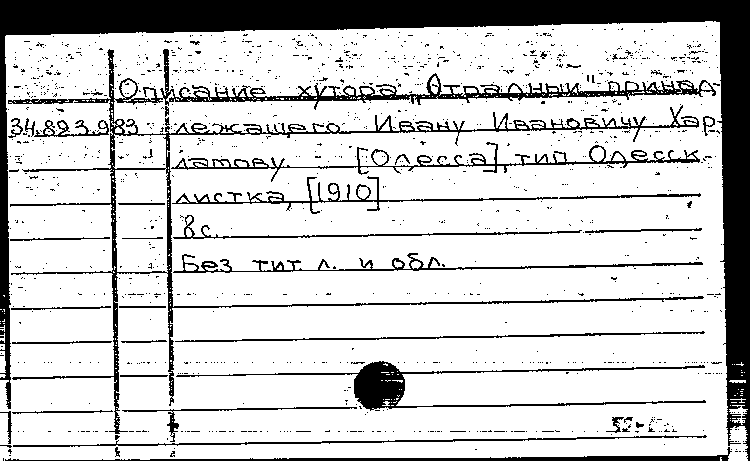 Описание хутора „Отрадный" принад-
34.823.983 лежащего Ивану Ивановичу Хар-
латову. [Одесса], тип. Одесск.
листка, [1910]
8с.
Без тит. л. и обл.